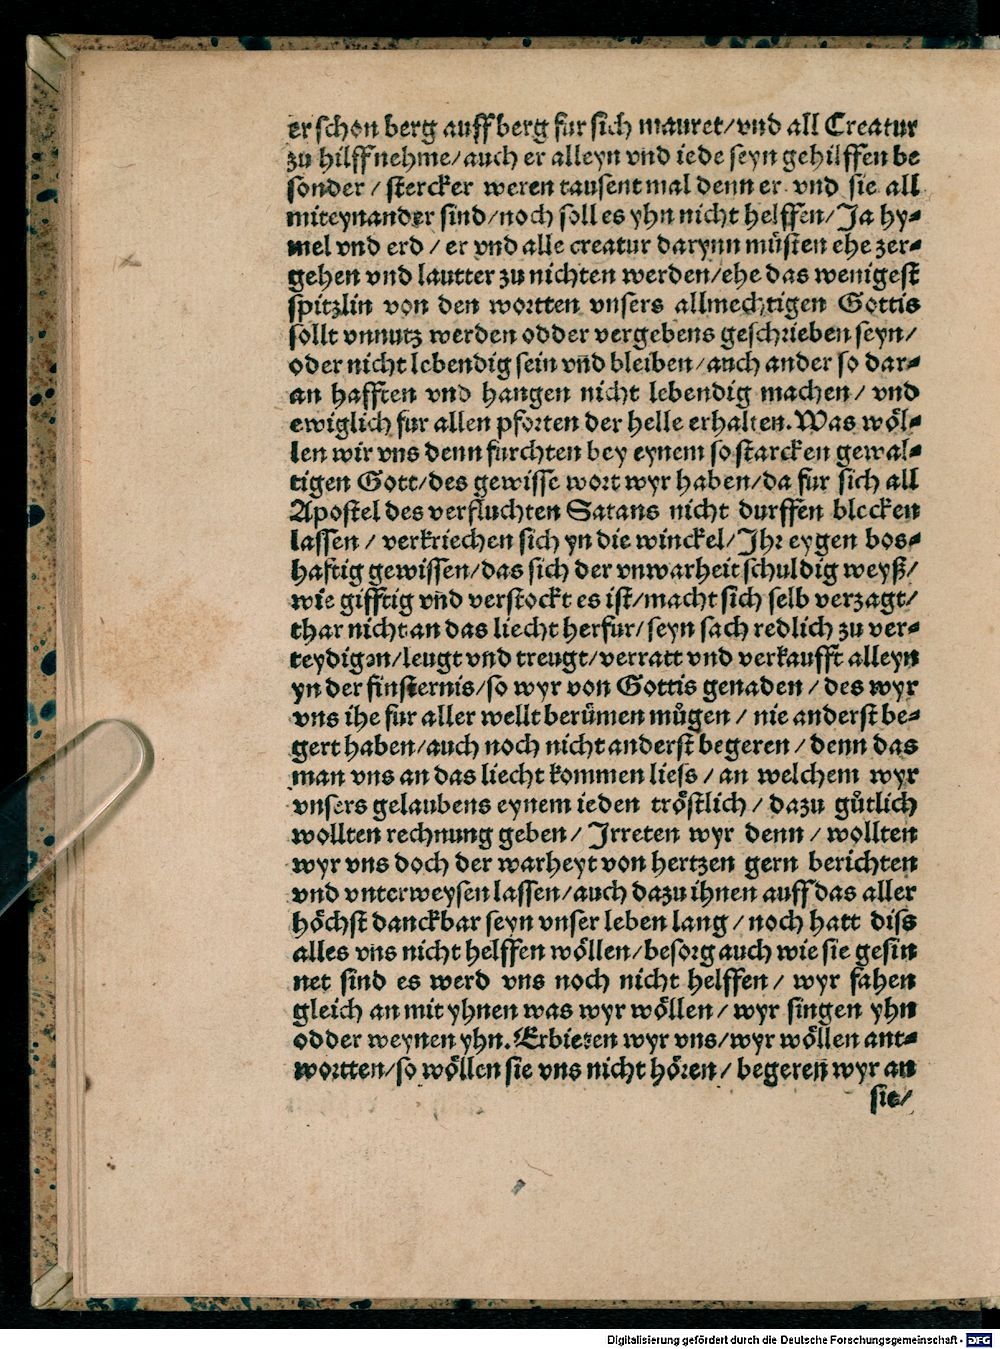 er schon berg auff berg fur sich mauret/ vnd all Creatur
zu hilff nehme/ auch er alleyn vnd iede seyn gehilffen be
sonder / stercker weren tausent mal denn er vnd sie all
miteynander sind/ noch soll es yhn nicht helffen/ Ja hy⸗
mel vnd erd / er vnd alle creatur darynn müsten ehe zer⸗
gehen vnd lautter zu nichten werden/ ehe das wenigest
spitzlin von den wortten vnsers allmechtigen Gottis
sollt vnnutz werden odder vergebens geschrieben seyn/
oder nicht lebendig sein vn̄d bleiben/ auch ander so dar⸗
an hafften vnd hangen nicht lebendig machen/ vnd
ewiglich fur allen pforten der helle erhalten. Was wöl⸗
len wir vns denn furchten bey eynem so starcken gewal⸗
tigen Gott/ des gewisse wort wyr haben/ da fur sich all
Apostel des verfluchten Satans nicht durffen blecken
lassen / verkriechen sich yn die winckel/ Ihr eygen bos⸗
hafftig gewissen/ das sich der vnwarheit schuldig weyß/
wie gifftig vn̄d verstockt es ist/ macht sich selb verzagt/
thar nicht an das liecht herfur/ seyn sach redlich zu ver⸗
teydigen/ leugt vnd treugt/ verratt vnd verkaufft alleyn
yn der finsternis/ so wyr von Gottis genaden / des wyr
vns ihe fur aller wellt berümen můgen / nie anderst be⸗
gert haben/ auch noch nicht anderst begeren / denn das
man vns an das liecht kommen liess / an welchem wyr
vnsers gelaubens eynem ieden tröstlich / dazu gůtlich
wollten rechnung geben/ Irreten wyr denn / wollten
wyr vns doch der warheyt von hertzen gern berichten
vnd vnterweysen lassen/ auch dazu ihnen auff das aller
höchst danckbar seyn vnser leben lang / noch hatt diss
alles vns nicht helffen wöllen/ besorg auch wie sie gesin
net sind es werd vns noch nicht helffen / wyr fahen
gleich an mit yhnen was wyr wöllen/ wyr singen yhn
odder weynen yhn. Erbieten wyr vns/ wyr wöllen ant⸗
wortten/ so wöllen sie vns nicht hören / begeren wyr an
sie/
Digitalisierung gefördert durch die Deutsche Forschungsgemeinschaft - DFG